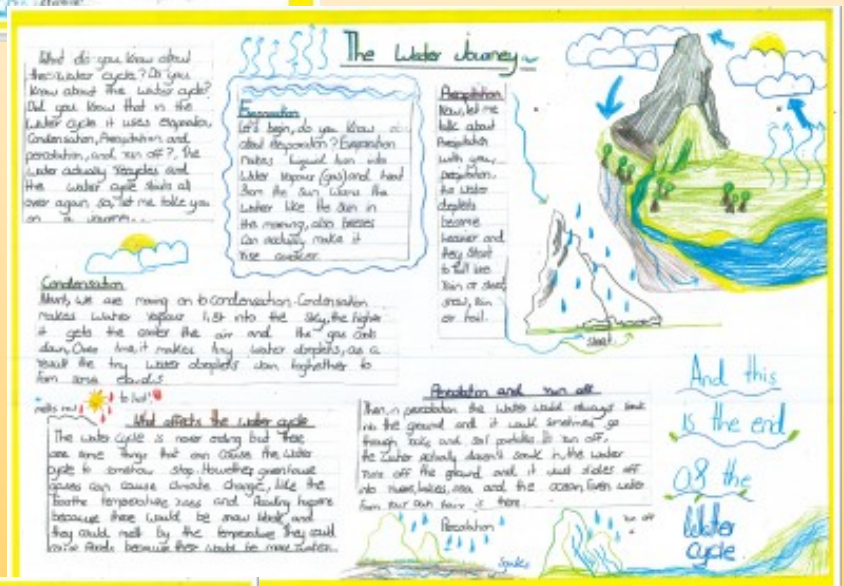 The Water Journey
What do you know about
the water cycle? Do you
know about the water cycle?
Did you know that in the
water cycle it uses
Condensation, Precipitation and
percolation, and run off?, The
water actually recycles and
the water cycle starts all
over again so, let me take you
on a
Evaporation
let's begin, do you know
about evaporation? Evaporation
makes liquid turn into
water vapour (gas) and heat
from the sun warms the
water like the sun in
the morning, also breezes
can actually make it
rise
Precipitation
Now, let me
talk about
Precipitation
with you,
the water
become
heavier and
they start
to fall like
rain or sleet,
snow, rain
or hail.
start
Condensation
we are moving on to condensation. Condensation
makes water vapour into the sky, the higher
it gets the the air and the gas cools
down, Over time, it makes tiny water as a
result the tiny water to
form some clouds
to hot!
What affects the water cycle
The water cycle is never ending but there
are some things that can cause the water
cycle to somehow stop. greenhouse
gases can cause climate change, like the
temperature rises and
because there would be snow and
they could melt by the temperature they could
cause floods because there would be more water.
Percolation and run off
Then, in percolation the water would always
into the ground and it would sometimes go
through rocks and soil In run off,
the water actually doesn't soak in, the water
runs off the ground and it just slides off
into rivers, lakes, sea and the ocean, Even water
from your own is there.
Percolation
run off
Soaks
And this
is the end
of the
Water
cycle.